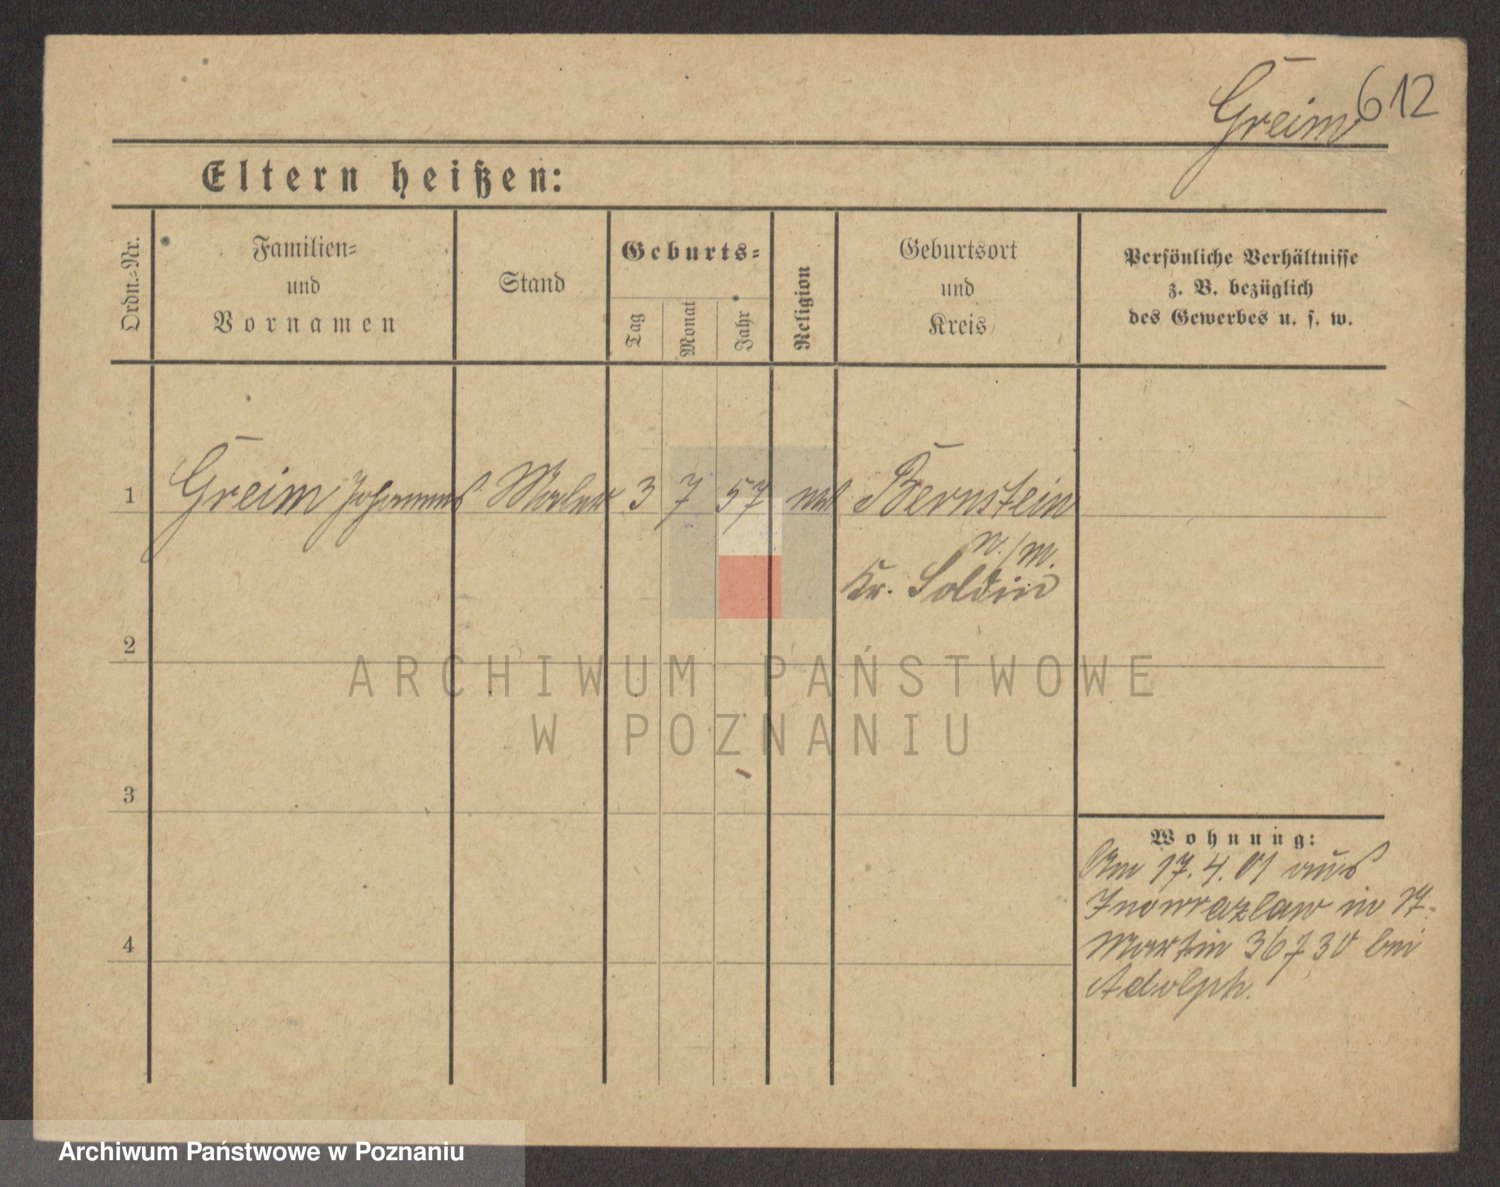 Greim 612
Eltern heißen:
Ordn.-Nr.
Familien-
und
Vornamen
Stand
Geburts-
Tag
Monat
Jahr
Religion
Geburtsort
und
Kreis
Persönliche Verhältnisse
z. B. bezüglich
des Gewerbes u. s. w.
1 Greim Johannes Maler 3 7 57 Bernstein
n./m.
Kr. Soldin
2
3
4
Wohnung:
Am 17.4.01 aus
Inowrazlaw in
Martin 36 bei
Adolph.
ARCHIWUM PAŃSTWOWE
W POZNANIU
Archiwum Państwowe w Poznaniu